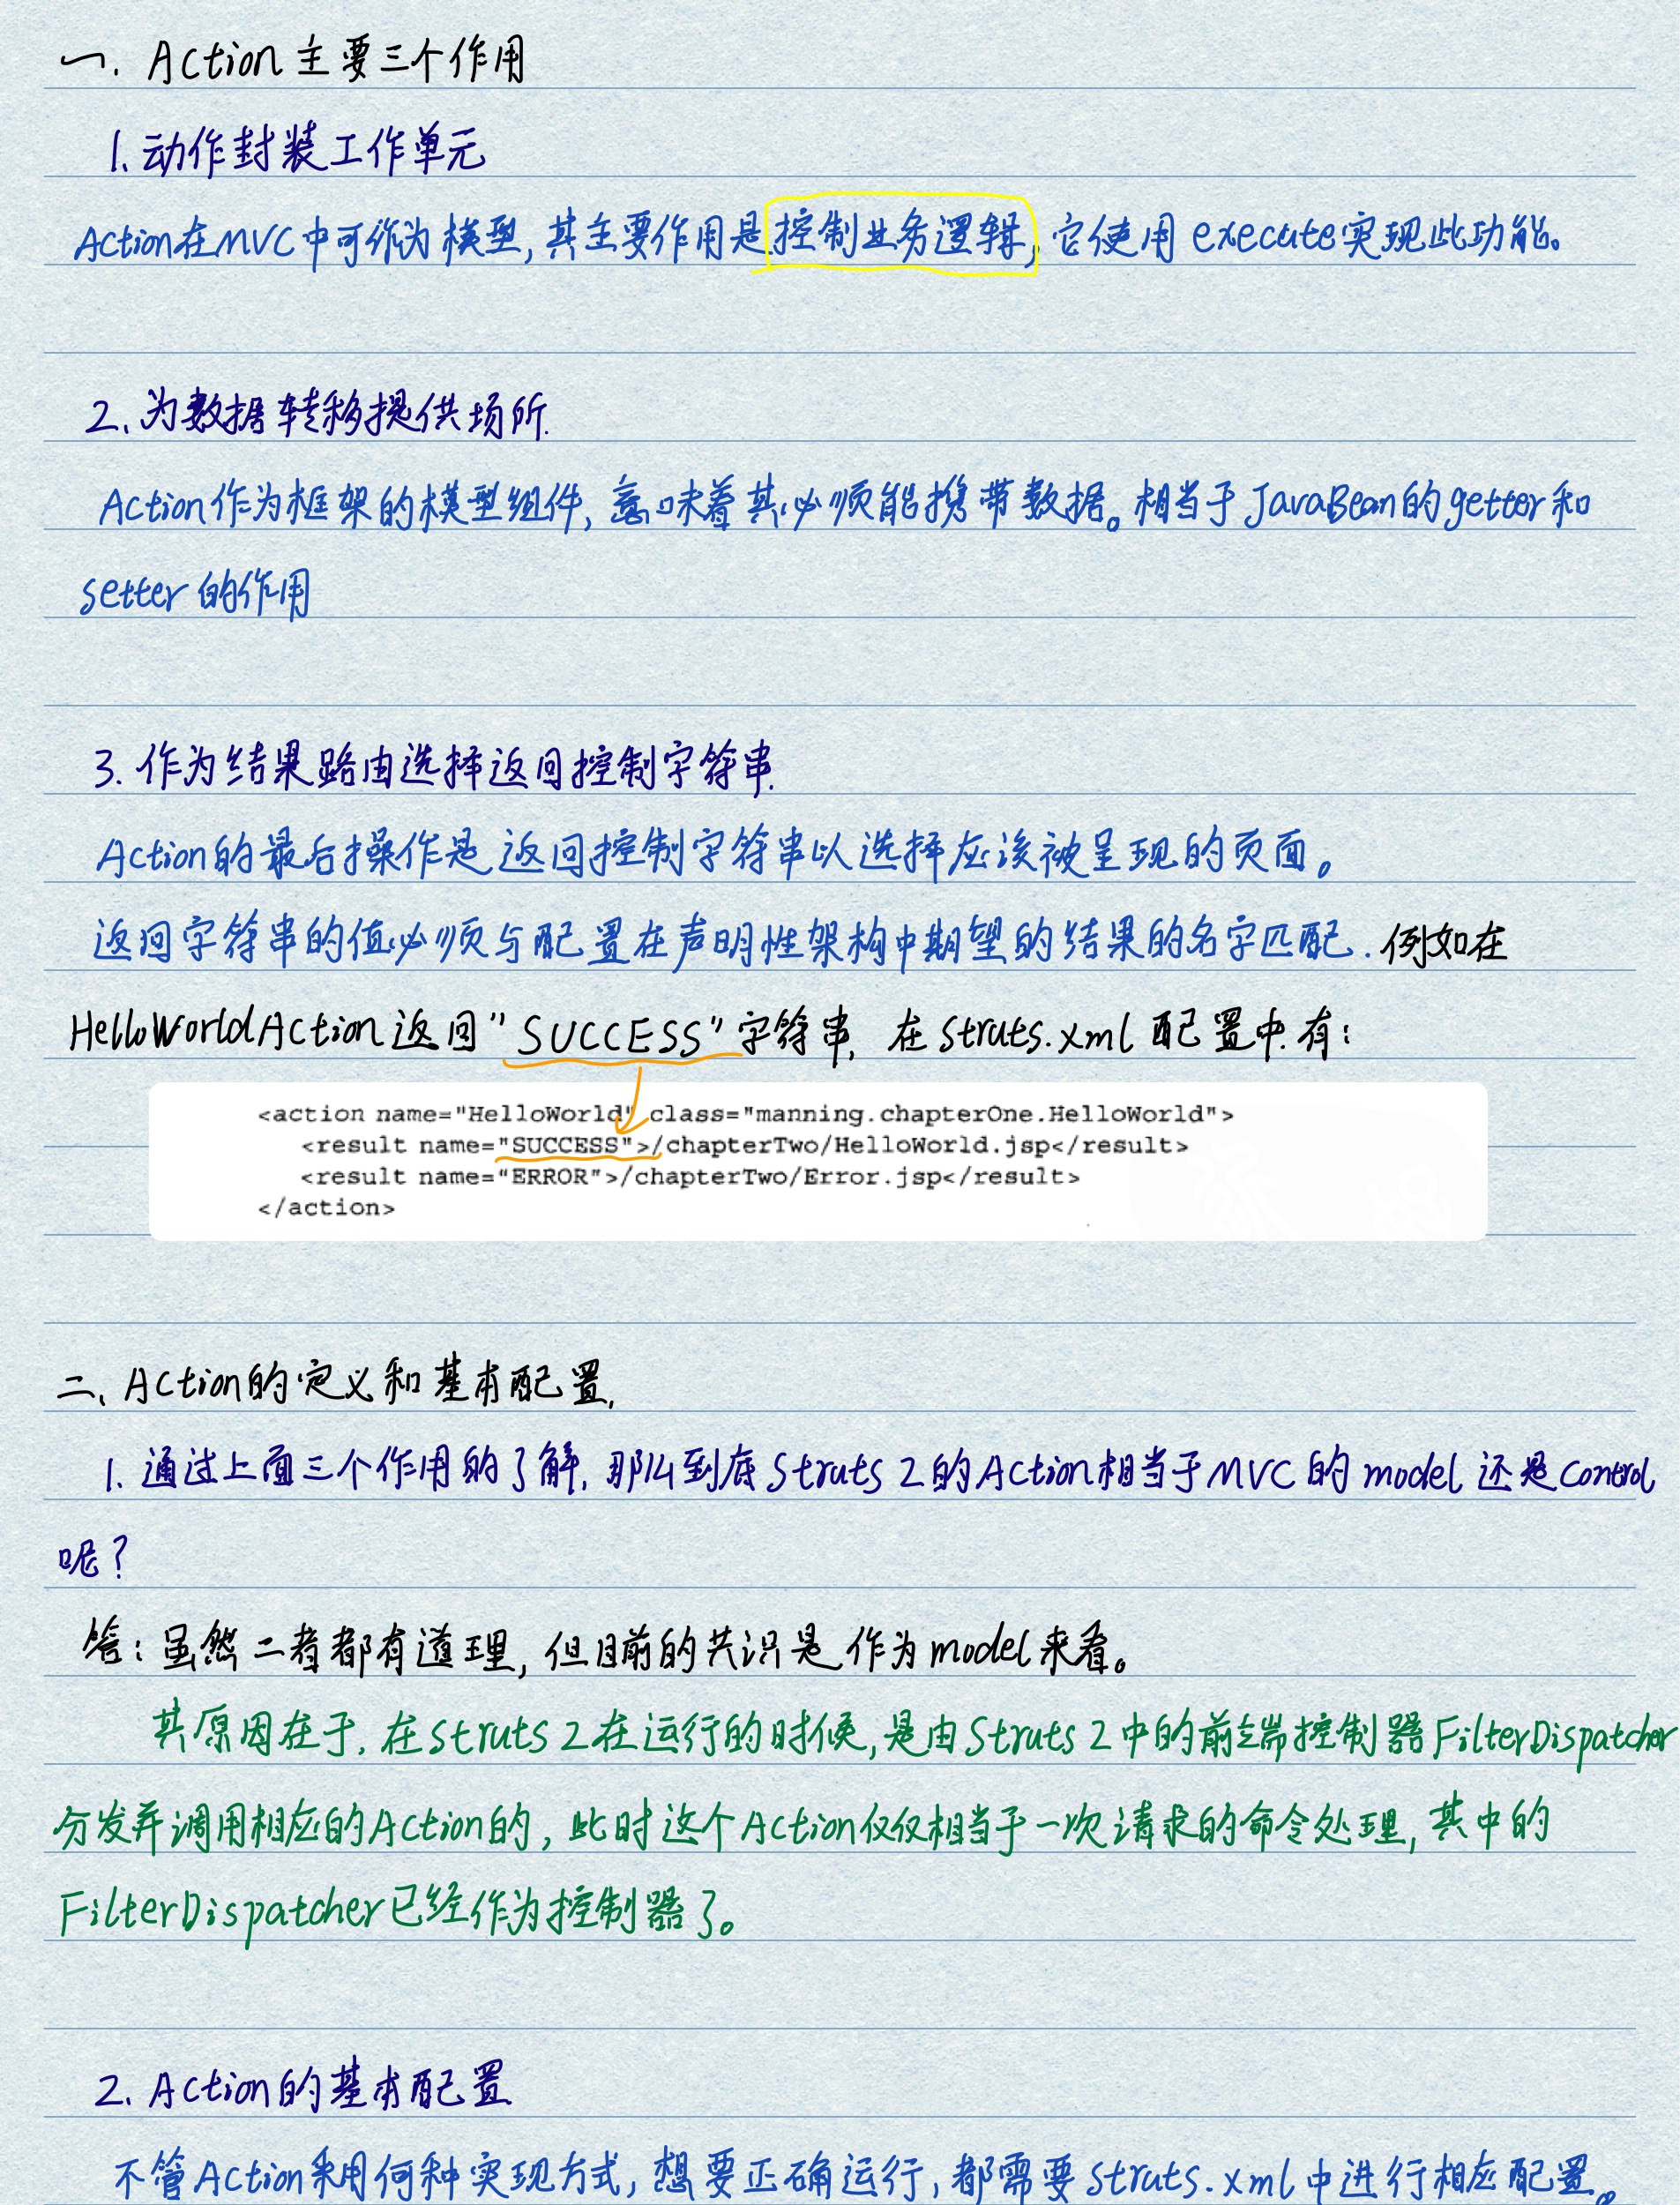 一. Action 主要三个作用
1. 动作封装工作单元
Action在MVC中可作为模型, 其主要作用是控制业务逻辑, 它使用 execute实现此功能。
2. 为数据转移提供场所.
Action作为框架的模型组件, 意味着其必须能携带数据。相当于JavaBean的getter和
setter的作用
3. 作为结果路由选择返回控制字符串.
Action的最后操作是返回控制字符串以选择应该被呈现的页面。
返回字符串的值必须与配置在声明性架构中期望的结果的名字匹配. 例如在
HelloWorldAction返回"SUCCESS"字符串, 在struts.xml配置中有:
<action name="HelloWorld" class="manning.chapterOne.HelloWorld">
<result name="SUCCESS">/chapterTwo/HelloWorld.jsp</result>
<result name="ERROR">/chapterTwo/Error.jsp</result>
</action>
二、Action的定义和基本配置,
1. 通过上面三个作用的了解, 那么到底Struts 2的Action相当于MVC的model还是Control
呢?
答: 虽然二者都有道理, 但目前的共识是作为model来看。
其原因在于, 在struts 2在运行的时候, 是由Struts 2中的前端控制器FilterDispatcher
分发并调用相应的Action的, 此时这个Action仅仅相当于一次请求的命令处理, 其中的
FilterDispatcher已经作为控制器了。
2. Action的基本配置
不管Action采用何种实现方式, 想要正确运行, 都需要struts.xml中进行相应配置。